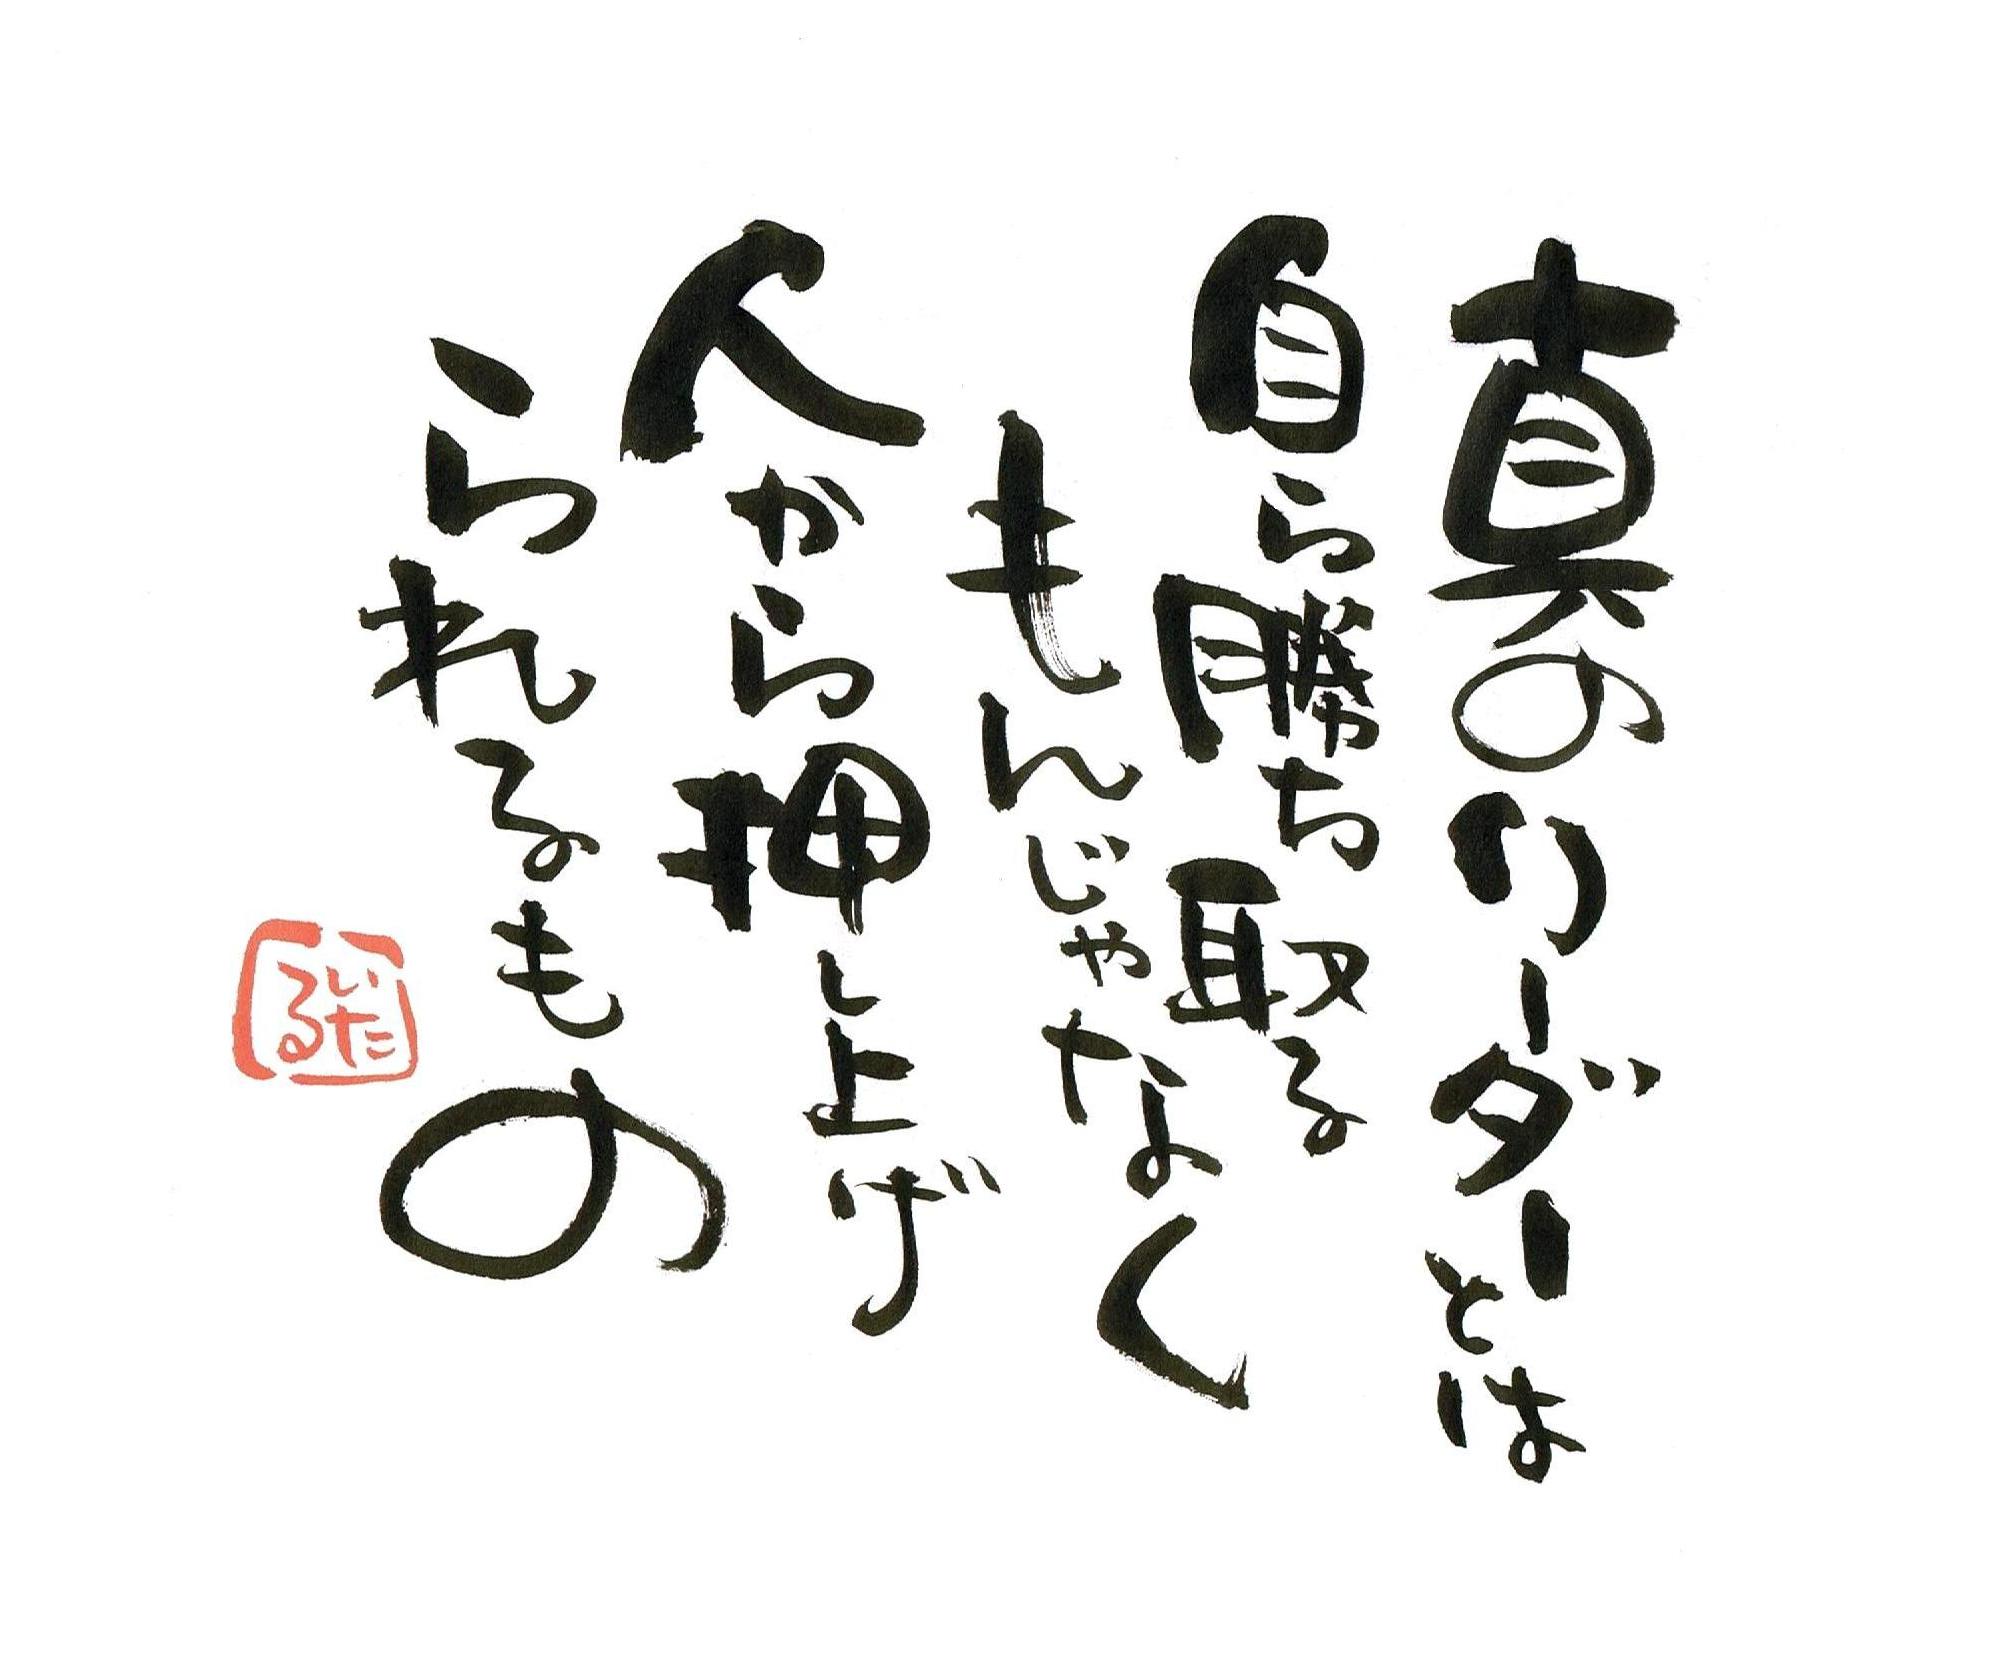 真のリーダーとは
自ら勝ち取る
もんじゃなく
人から押し上げ
られるもの
いたる